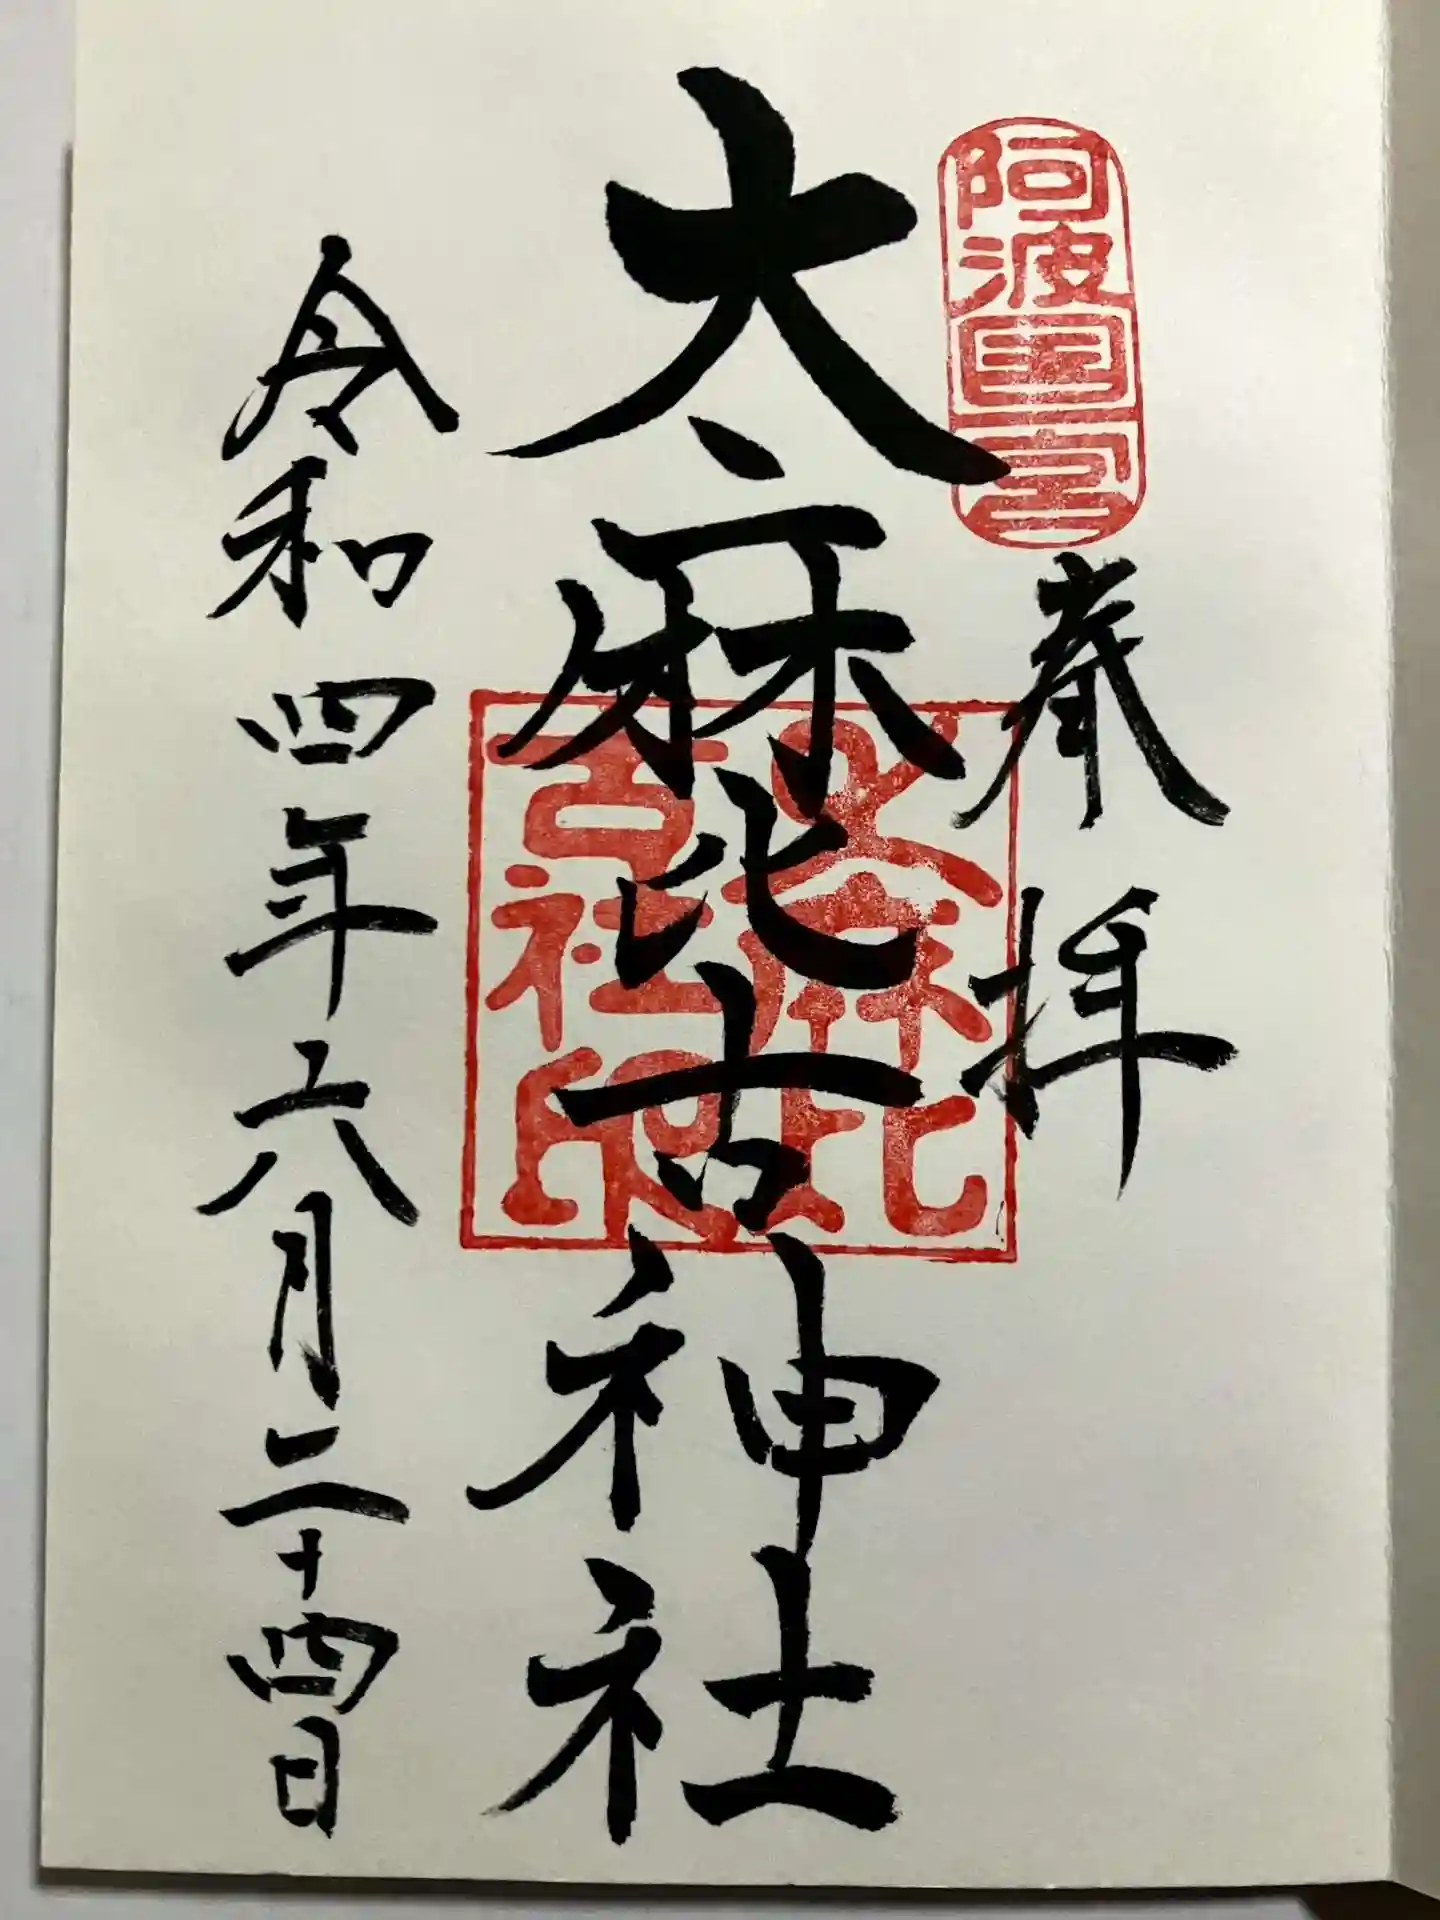 阿波国一宮
奉拝
大麻比古神社
大麻比
古社印
令和四年六月二十四日